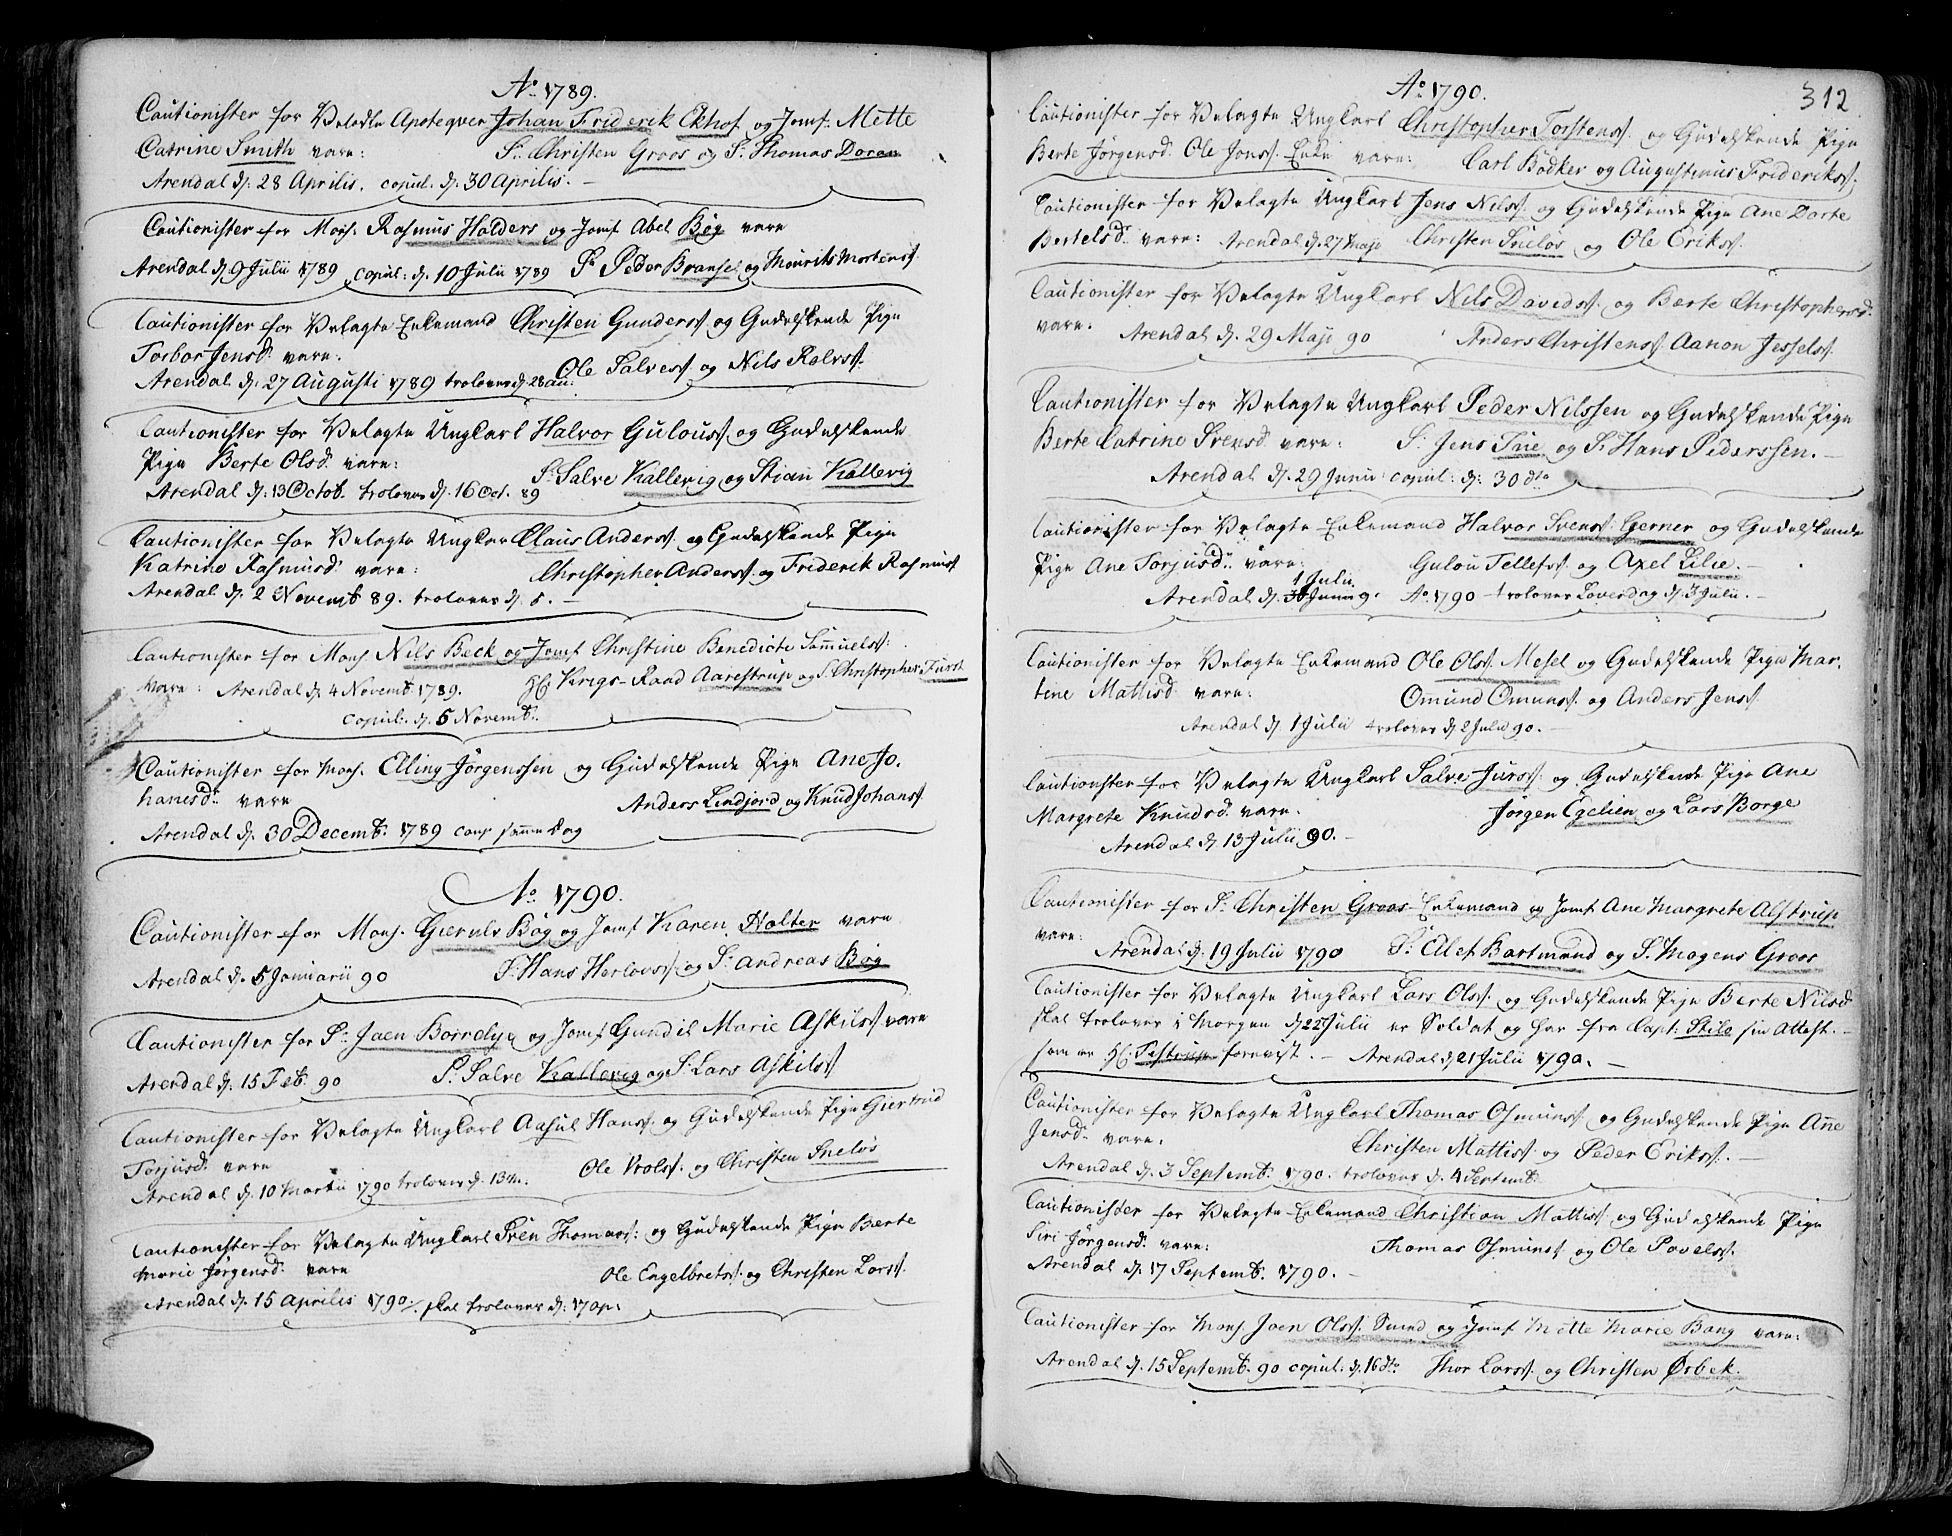 Ao 1789.
Cautionister for Velædle Apoteqver Johan Friderik Ekhof og Jomf. Mette
Catrine Smith vare: Sr. Christen Groos og Sr. Thomas Doran
Arendal d. 28 Aprilis. copul. d. 30 Aprilis. —
Cautionister for Mons. Rasmus Halders og Jomf Abel Bøg vare
Arendal d. 9 Julii 1789 copul: d. 10 Julii 1789 Sr. Peder Bransel og Mourits Mortens.
Cautionister for Velagte Enkemand Christen Gunders. og Gudelskende Pige
Torbor Jensd. vare:
Ole Salves. og Nils Rolvs.
Arendal d. 27 Augusti 1789 troloves d. 28 au:
Cautionister for Velagte Ungkarl Halvor Gulous. og Gudelskende
Pige Berte Olsd. vare:
Sr. Salve Kallevig og Stian Kallevig
Arendal d. 13 Octob. troloves d. 16 Oct. 89
Cautionister for Velagte Ungkar Claus Anders. og Gudelskende Pige
Katrine Rasmusd. vare: Christopher Anders. og Friderik Rasmus
Arendal d. 2 Novemb 89. troloves d. 5. —
Cautionister for Mons. Nils Beck og Jomf Christine Benedicte Samuels.
vare: Arendal d. 4 Novemb. 1789. Hr. Krigs-Raad Aarestrup og S. Christopher Fürst
copul. d. 5 Novemb.
Cautionister for Mons. Elling Jörgenssen og Gudelskende Pige Ane Jo,
hanesdr. vare
Anders Lindjord og Knud Johans.
Arendal d. 30 Decemb. 1789 cop. samme Dag
Ao 1790.
Cautionister for Mons. Gieruls Bøg og Jomf Karen Holter vare
Arendal d. 5 Januarii 90 Sr. Hans Herlovs. og Sr. Andreas Bøg
Cautionister for Sr. Jaen Borrelye og Jomf Gundil Marie Askils. vare
Arendal d. 15 Feb. 90 Sr. Salve Kallevig og Sr. Lars Askils.
Cautionister for Velagte Ungkarl Aasul Hans. og Gudelskende Pige Giertrud
Torjusd. vare
Ole Vrols. og Christen Sneløs
Arendal d. 10 Martii 1790 troloves d. 13 M.
Cautionister for Velagte Ungkarl Sven Thomas. og Gudelskende Pige Berte
Marie Jørgensd. vare
Ole Engelbrets. og Christen Lars.
Arendal d. 15 Aprilis 1790. skal troloves d: 17 ap:
312
Ao 1790.
Cautionister for Velagte Ungkarl Christopher Torstens. og Gudelskende Pige
Berte Jørgensd. Ole Jons. Enke vare: Carl Bødker og Augustinus Frideriks.
Cautionister for Velagte Ungkarl Jens Nils. og Gudelskende Pige Ane Dorte
Bertelsdr. vare: Arendal d. 27 Maji Christen Sneløs og Ole Eriks.
Cautionister for Velagte Ungkarl Nils Davids. og Berte Christophersd.
vare:
Arendal d. 29 Maji 90 Anders Christens. Aanon Jessels.
Cautionister for Velagte Ungkarl Peder Nilssen og Gudelskende Pige
Berte Catrine Svensd. vare: Sr. Jens Tue og Sr. Hans Pederssen. —
Arendal d. 29 Junii copul: d. 30 dto
Cautionister for Velagte Enkemand Halvor Svens. Gerner og Gudelskende
Pige Ane Torjusdr. vare: Gulou Tellefs. og Axel Lilie.
1 Julii
Arendal d. 30 Junii 9. Ao 1790 troloves Löverdag d. 3 Julii. —
Cautionister for Velagte Enkemand Ole Ols. Mesel og Gudelskende Pige Mar,
tine Mattisd. vare: Omund Omuns. og Anders Jens.
Arendal d. 1 Julii troloves d. 2 Julii 90. —
Cautionister for Velagte Ungkarl Salve Jurs. og Gudelskende Pige Ane
Margrete Knudsd. vare.
Jörgen Egelien og Lars Borge
Arendal d. 13 Julii 90. —
Cautionister for Sr. Christen Groos Enkemand og Jomf Ane Margrete Alstrup
vare:
Arendal d. 19 Julii 1790 Sr. Elef Bartmund og S. Mogens Groos
Cautionister for Velagte Ungkarl Lars Ols. og Gudelskende Pige Berte Nilsd
skal troloves i Morgen d. 22 Julii er Soldat og har fra Capt: Skile sin Attest. —
som er Hr. forevist. — Arendal d. 21 Julii 1790. —
Cautionister for Velagte Ungkarl Thomas Osmuns. og Gudelskende Pige Ane
Jensd. vare:
Christen Mattis. og Peder Eriks. —
Arendal d. 3 Septemb. 1790. troloves d. 4 Septemb.
Cautionister for Velagte Enkemand Christian Mattis. og Gudelskende Pige
Siri Jørgensd. vare:
Thomas Osmuns. og Ole Povels.
Arendal d. 17 Septemb. 1790. —
Cautionister for Mons. Joen Ols. Smed og Jomf Mette Marie Bang vare:
Arendal d. 15 Septemb. 90 copul: d. 16 dto Thor Lars. og Christen Ørbek.